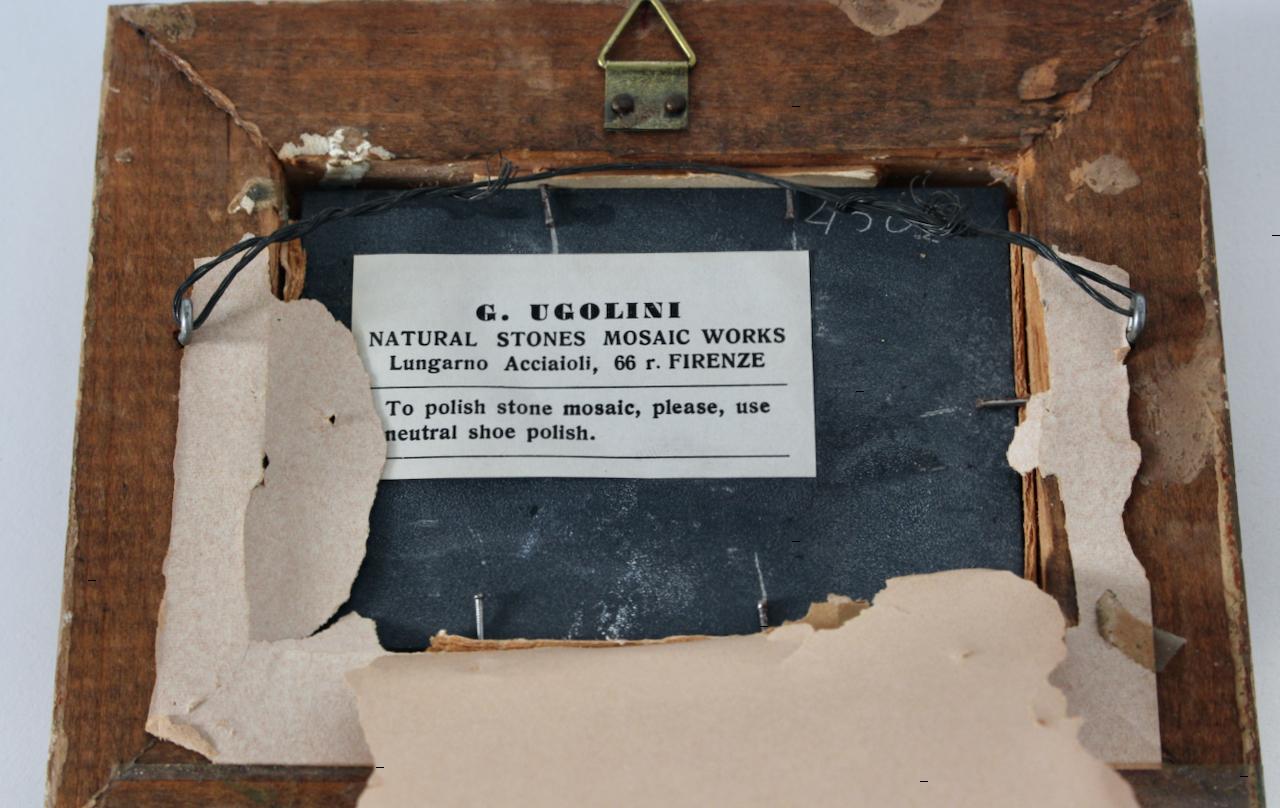 G. UGOLINI
NATURAL STONES MOSAIC WORKS
Lungarno Acciaioli, 66 r. FIRENZE
To polish stone mosaic, please, use
neutral shoe polish.